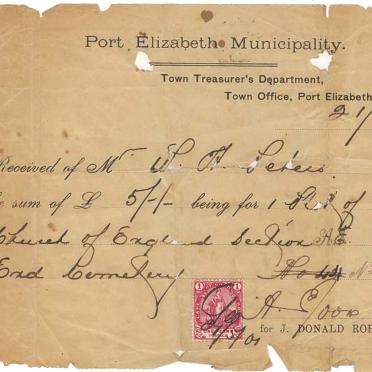 Port Elizabeth Municipality.
Town Treasurer's Department,
Town Office, Port Elizabeth
21/
Received of Mr Peters
e sum of £ 5/-/- being for 1 of
Church of England Section
End Cemetery No
1 1
A
for J. DONALD ROB